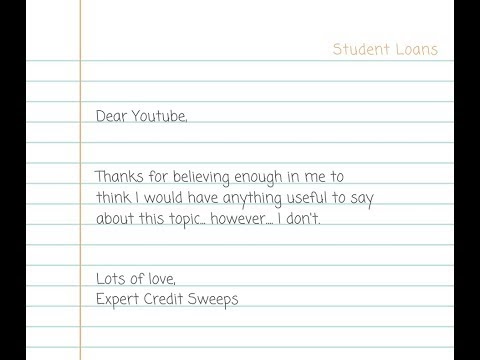 Student Loans
Dear Youtube,
Thanks for believing enough in me to
think I would have anything useful to say
about this topic... however.... I don't.
Lots of love,
Expert Credit Sweeps